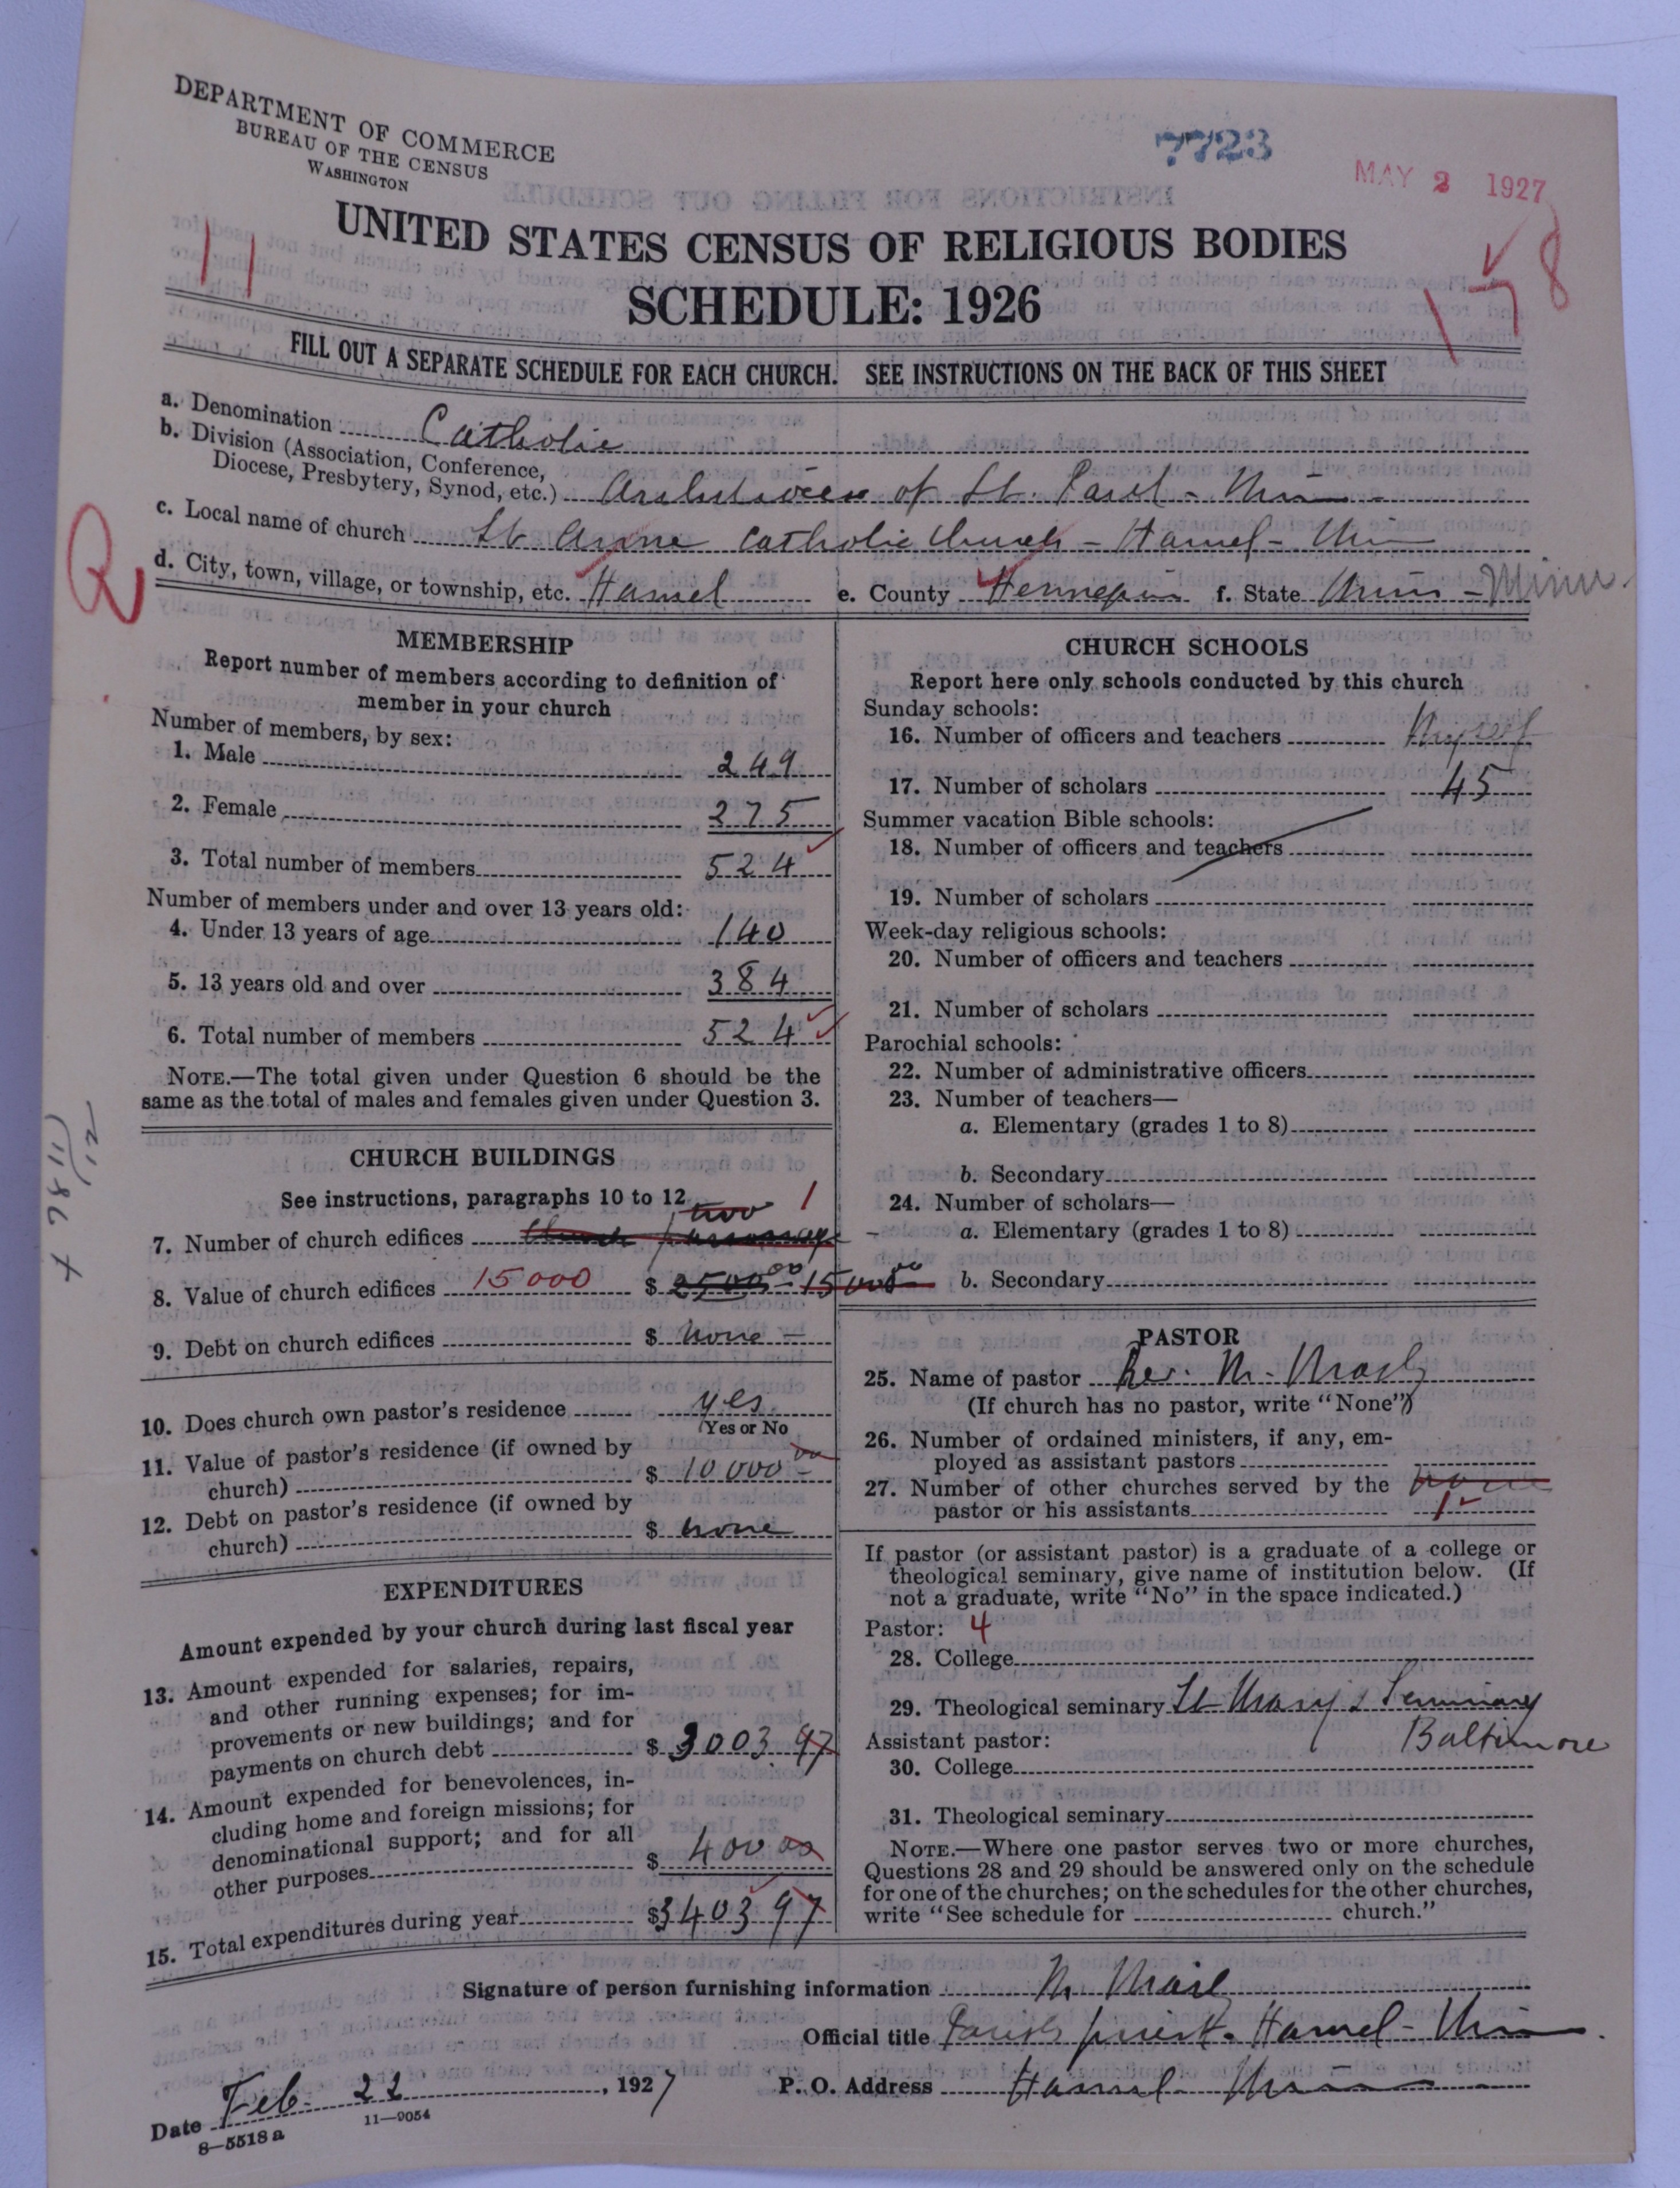 DEPARTMENT OF COMMERCE
BUREAU OF THE CENSUS
WASHINGTON
7723
MAY 2 1927
11
178
UNITED STATES CENSUS OF RELIGIOUS BODIES
SCHEDULE: 1926
FILL OUT A SEPARATE SCHEDULE FOR EACH CHURCH. SEE INSTRUCTIONS ON THE BACK OF THIS SHEET
a. Denomination Catholic
b. Division (Association, Conference,
Diocese, Presbytery, Synod, etc.) Archdiocese of St. Paul - Min
c. Local name of church St Anne Catholic Church - Hamel - Min
d. City, town, village, or township, etc. Hamel e. County Hennepin f. State Minn - Minn.
MEMBERSHIP
Report number of members according to definition of
member in your church
Number of members, by sex:
1. Male 249
2. Female 275
3. Total number of members 524
Number of members under and over 13 years old:
4. Under 13 years of age 140
5. 13 years old and over 384
6. Total number of members 524
NOTE.—The total given under Question 6 should be the
same as the total of males and females given under Question 3.
CHURCH BUILDINGS
See instructions, paragraphs 10 to 12
two 1
7. Number of church edifices Church parsonage
8. Value of church edifices 15000 $ 2500 00 - 15000 00
9. Debt on church edifices $ none -
10. Does church own pastor's residence yes
(Yes or No
11. Value of pastor's residence (if owned by
church) $ 10000 00
12. Debt on pastor's residence (if owned by
church) $ none
EXPENDITURES
Amount expended by your church during last fiscal year
13. Amount expended for salaries, repairs,
and other running expenses; for im-
provements or new buildings; and for
payments on church debt $ 3003.97
14. Amount expended for benevolences, in-
cluding home and foreign missions; for
denominational support; and for all
other purposes $ 400 00
15. Total expenditures during year $3403 97
CHURCH SCHOOLS
Report here only schools conducted by this church
Sunday schools:
16. Number of officers and teachers Myself
17. Number of scholars 45
Summer vacation Bible schools:
18. Number of officers and teachers
19. Number of scholars
Week-day religious schools:
20. Number of officers and teachers
21. Number of scholars
Parochial schools:
22. Number of administrative officers
23. Number of teachers—
a. Elementary (grades 1 to 8)
b. Secondary
24. Number of scholars—
a. Elementary (grades 1 to 8)
b. Secondary
PASTOR
25. Name of pastor Rev. M.
(If church has no pastor, write "None")
26. Number of ordained ministers, if any, em-
ployed as assistant pastors
27. Number of other churches served by the none
pastor or his assistants 1
If pastor (or assistant pastor) is a graduate of a college or
theological seminary, give name of institution below. (If
not a graduate, write "No" in the space indicated.)
Pastor: 4
28. College
29. Theological seminary St Mary's Seminary
Assistant pastor: Baltimore
30. College
31. Theological seminary
NOTE.—Where one pastor serves two or more churches,
Questions 28 and 29 should be answered only on the schedule
for one of the churches; on the schedules for the other churches,
write "See schedule for church."
Signature of person furnishing information M.
Official title Parish priest. Hamel - Min
Date Feb. 22, 1927 P. O. Address Hamel - Min
11—9054
8—5518 a